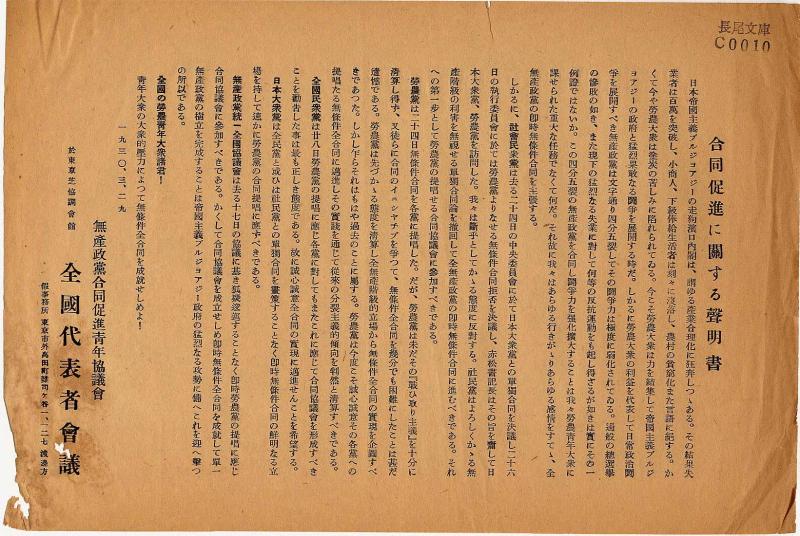 長尾文庫
C0010
合同促進に關する聲明書
日本帝國主義ブルジョアジーの走狗濱口内閣は、謂ゆる産業合理化に狂奔しつゝある。その結果失
業者は百萬を突破し、小商人、下級俸給生活者は刻々に沒落し、農村の貧窮化また言語に絕する。か
くて今や勞農大衆は塗炭の苦しみに陷れられてゐる。今こそ勞農大衆は力を結集して帝國主義ブルジ
ョアジーの政府と猛烈果敢なる鬪爭を展開する時だ。しかるに勞農大衆の利益を代表して日常政治鬪
爭を展開すべき無產政黨は文字通り四分五裂してその鬪爭力は極度に弱化されてゐる。過般の總選擧
の慘敗の如き、また現下の猛烈なる失業に對して何等の反抗運動をも起し得ざるが如きは實にその一
例證ではないか。この四分五裂の無產政黨を合同し鬪爭力を强化擴大することは我々勞農靑年大衆に
課せられた重大な任務でなくて何だ。それ故に我々はあらゆる行きがゝりあらゆる感情をすてゝ、全
無產政黨の卽時無條件全合同を主張する。
しかるに、社會民衆黨は去る二十四日の中央委員會に於て日本大衆黨との單獨合同を決議し二十六
日の執行委員會に於ては勞農黨よりなせる無條件全合同拒否を決議し、赤松書記長はその旨を齎して日
本大衆黨、勞農黨を訪問した。我々は斷乎としてかゝる態度に反對する。社民黨はよろしくかゝる無
產階級の利害を無視せる單獨合同論を撤回して全無產政黨の卽時無條件全合同に進むべきである。それ
への第一步として勞農黨の提唱せる合同協議會に參加すべきである。
勞農黨は二十四日無條件全合同を各黨に提唱した。だが、勞農黨は未だその『戰ひ取り主義』を十分に
淸算し得ず、叉徒らに合同のイニシヤチブを爭つて、無條件全合同を幾分でも困難にしたことは甚だ
遺憾である。勞農黨は先づかゝる態度を淸算し全無產階級的立場から無條件全合同の實現を企圖すべ
きであつた。しかし乍らそれはもはや過去のことに屬する。勞農黨は今度こそ誠心誠意その各黨への
提唱たる無條件全合同に邁進しその實踐を通じて從來の分裂主義的傾向を判然と淸算すべきである。
全國民衆黨は廿八日勞農黨の提唱に應じ各黨に對してもまたこれに應じて合同協議會を形成すべき
ことを勸吿した事は最も正しき態度である。故に誠心誠意全合同の實現に邁進せんことを希望する。
日本大衆黨は全民黨と或ひは社民黨との單獨合同を畫策することなく卽時無條件全合同の鮮明なる立
場を持して速かに勞農黨の合同提唱に應ずべきである。
無產政黨統一全國協議會は去る十七日の協議に基き狐疑逡巡することなく卽時勞農黨の提唱に應じ
合同協議會に參加すべきである。かくして合同協議會を成立せしめ卽時無條件全合同を成就して單一
無產政黨の樹立を完成することは帝國主義ブルジョアジー政府の猛烈なる攻勢に備へこれを迎へ擊つ
の所以である。
全國の勞農靑年大衆諸君!
靑年大衆の大衆的壓力によつて無條件全合同を成就せしめよ!
一九三〇、三、二九
於東京芝協調會館
無產政黨合同促進靑年協議會
全國代表者會議
假事務所 東京市外高田町雜司ヶ谷一、一二七 渡邊方